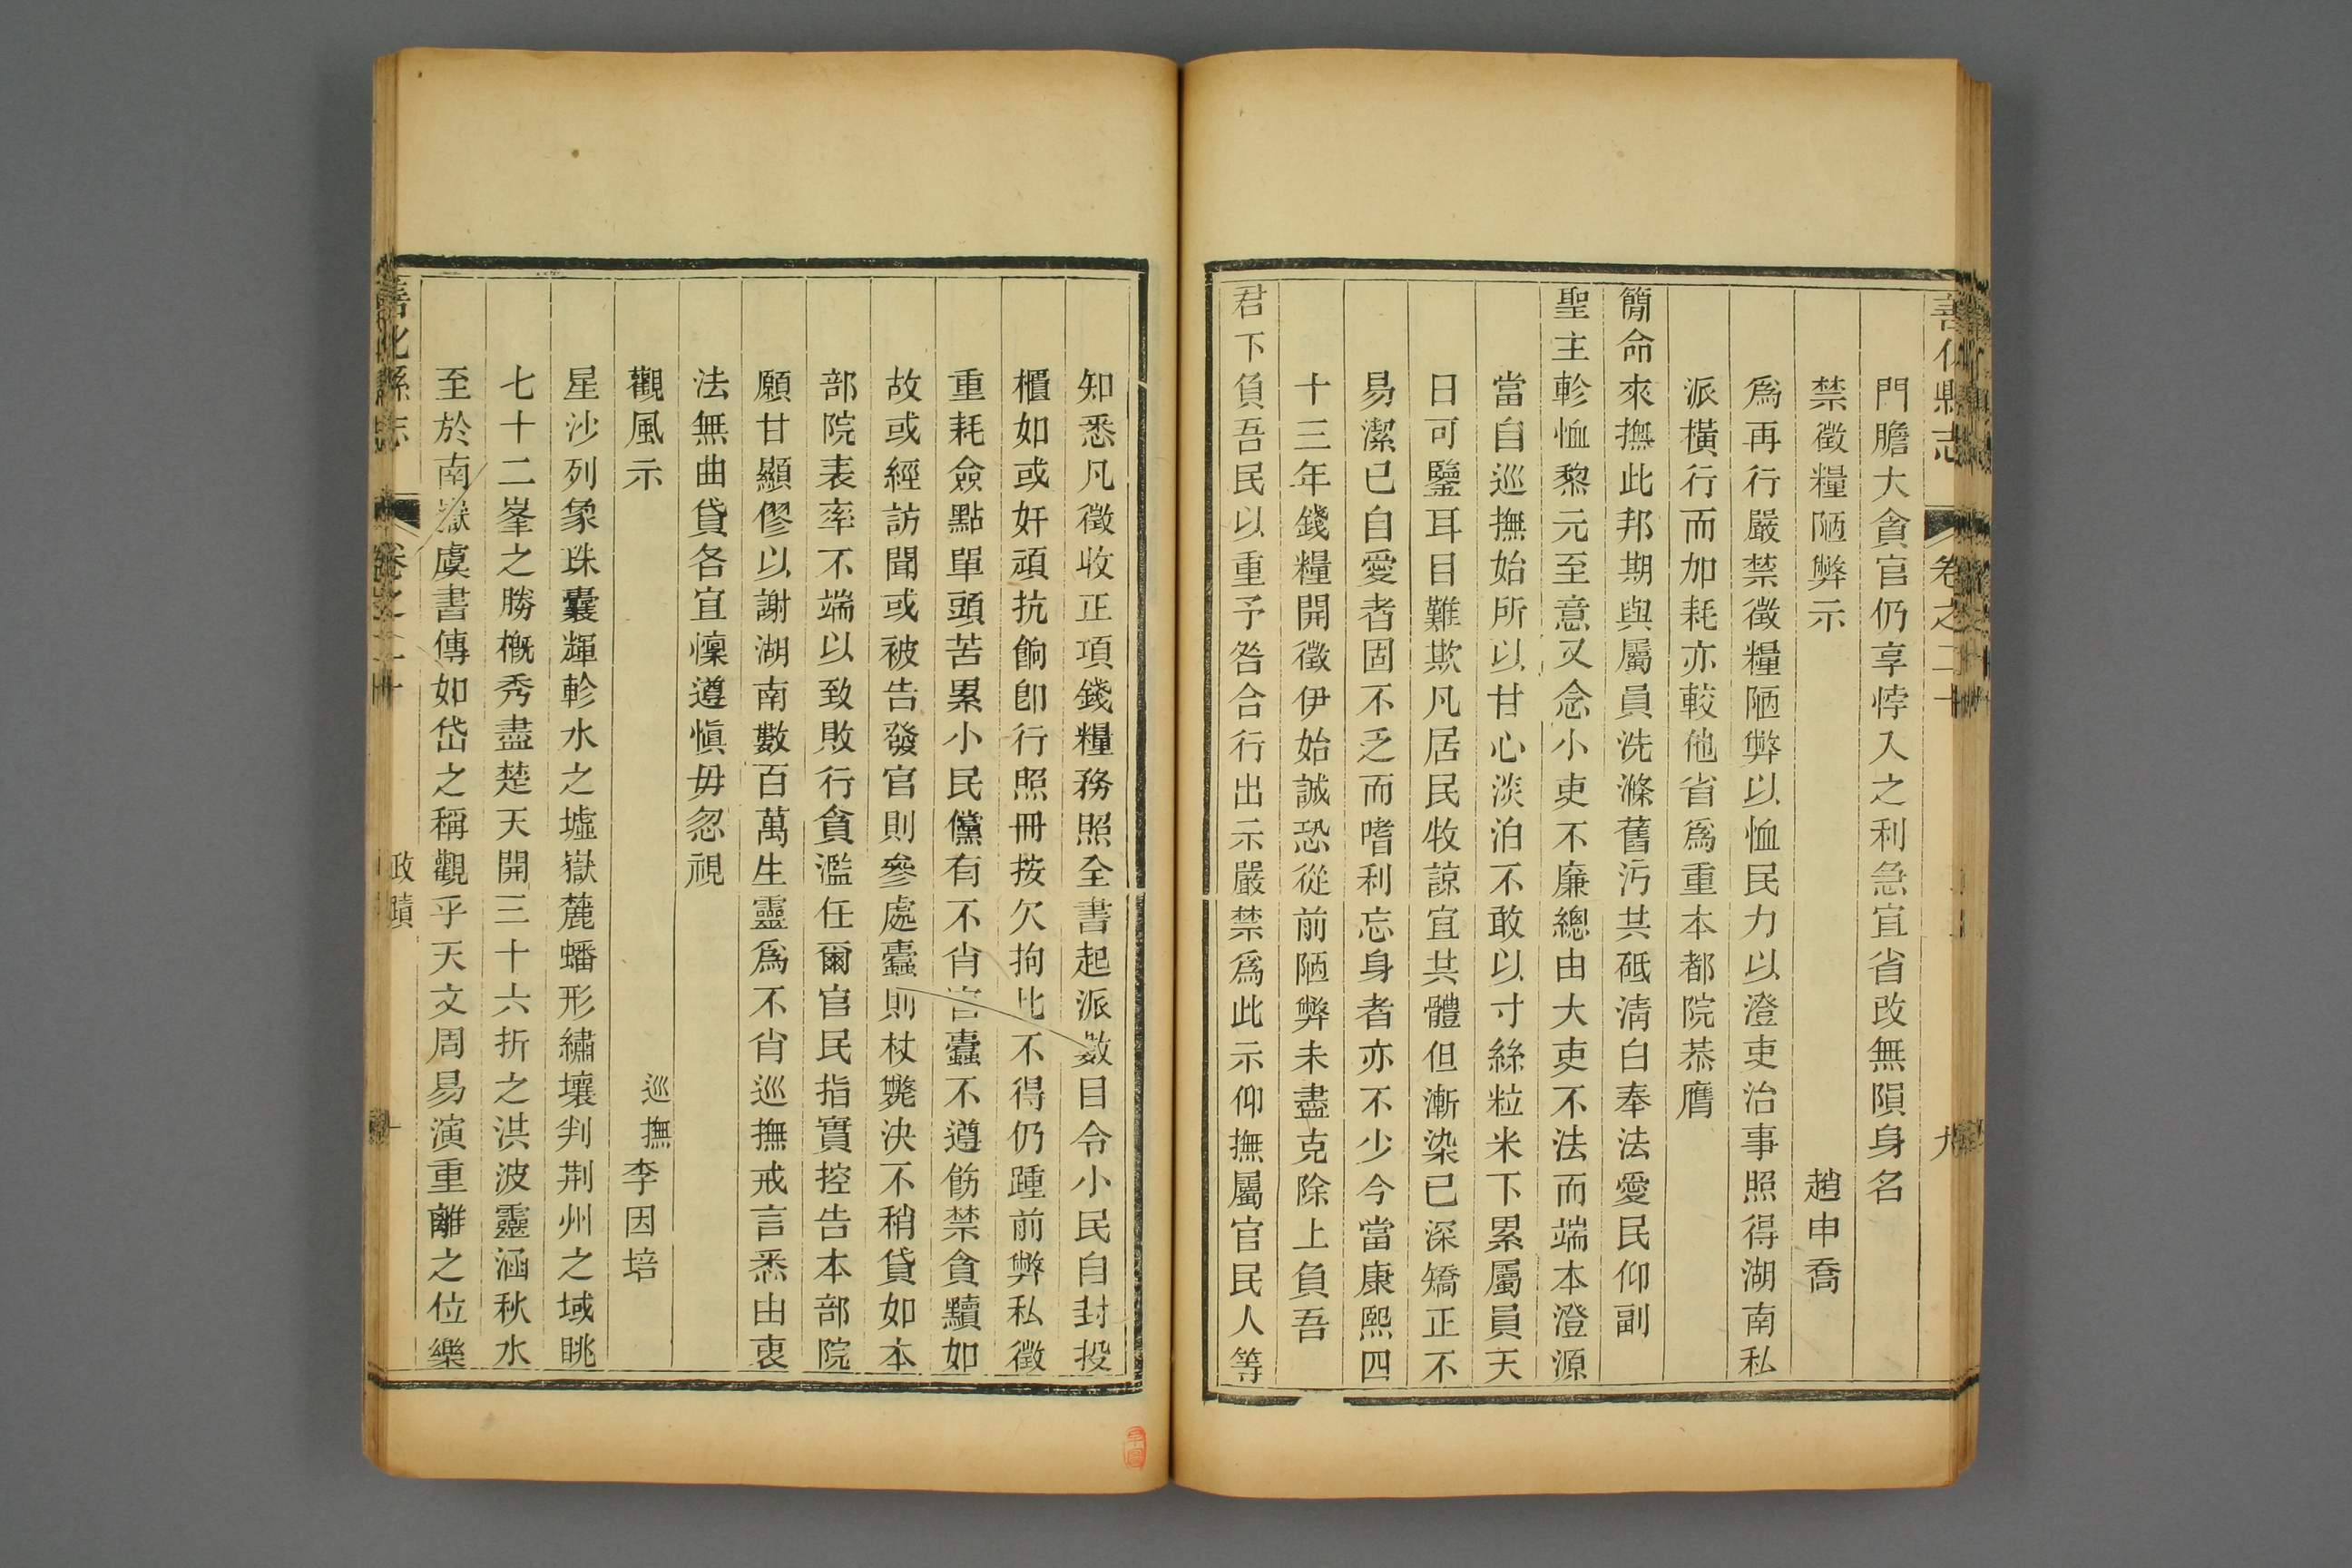 善化縣志 卷之二十 九
門膽大貪官仍享悖入之利急宜省改無隕身名
禁徵糧陋弊示 趙申喬
爲再行嚴禁徵糧陋弊以恤民力以澄吏治事照得湖南私
派橫行而加耗亦較他省爲重本都院恭膺
簡命來撫此邦期與屬員洗滌舊污共砥清白奉法愛民仰副
聖主軫恤黎元至意又念小吏不廉總由大吏不法而端本澄源
當自巡撫始所以甘心淡泊不敢以寸絲粒米下累屬員天
日可鑒耳目難欺凡居民牧諒宜共體但漸染已深矯正不
易潔已自愛者固不乏而嗜利忘身者亦不少今當康熙四
十三年錢糧開徵伊始誠恐從前陋弊未盡克除上負吾
君下負吾民以重予咎合行出示嚴禁爲此示仰撫屬官民人等
知悉凡徵收正項錢糧務照全書起派數目令小民自封投
櫃如或奸頑抗餉卽行照冊按欠拘比不得仍踵前弊私徵
重耗僉點單頭苦累小民儻有不肖官蠹不遵飭禁貪黷如
故或經訪聞或被告發官則參處蠹則杖斃決不稍貸如本
部院表率不端以致敗行貪濫任爾官民指實控告本部院
願甘顯僇以謝湖南數百萬生靈爲不肖巡撫戒言悉由衷
法無曲貸各宜懍遵愼毋忽視
觀風示 巡撫李因培
星沙列象珠囊輝軫水之墟嶽麓蟠形繡壤判荆州之域眺
七十二峯之勝槪秀盡楚天開三十六折之洪波靈涵秋水
至於南嶽虞書傳如岱之稱觀乎天文周易演重離之位樂
善化縣志 卷之二十 政蹟